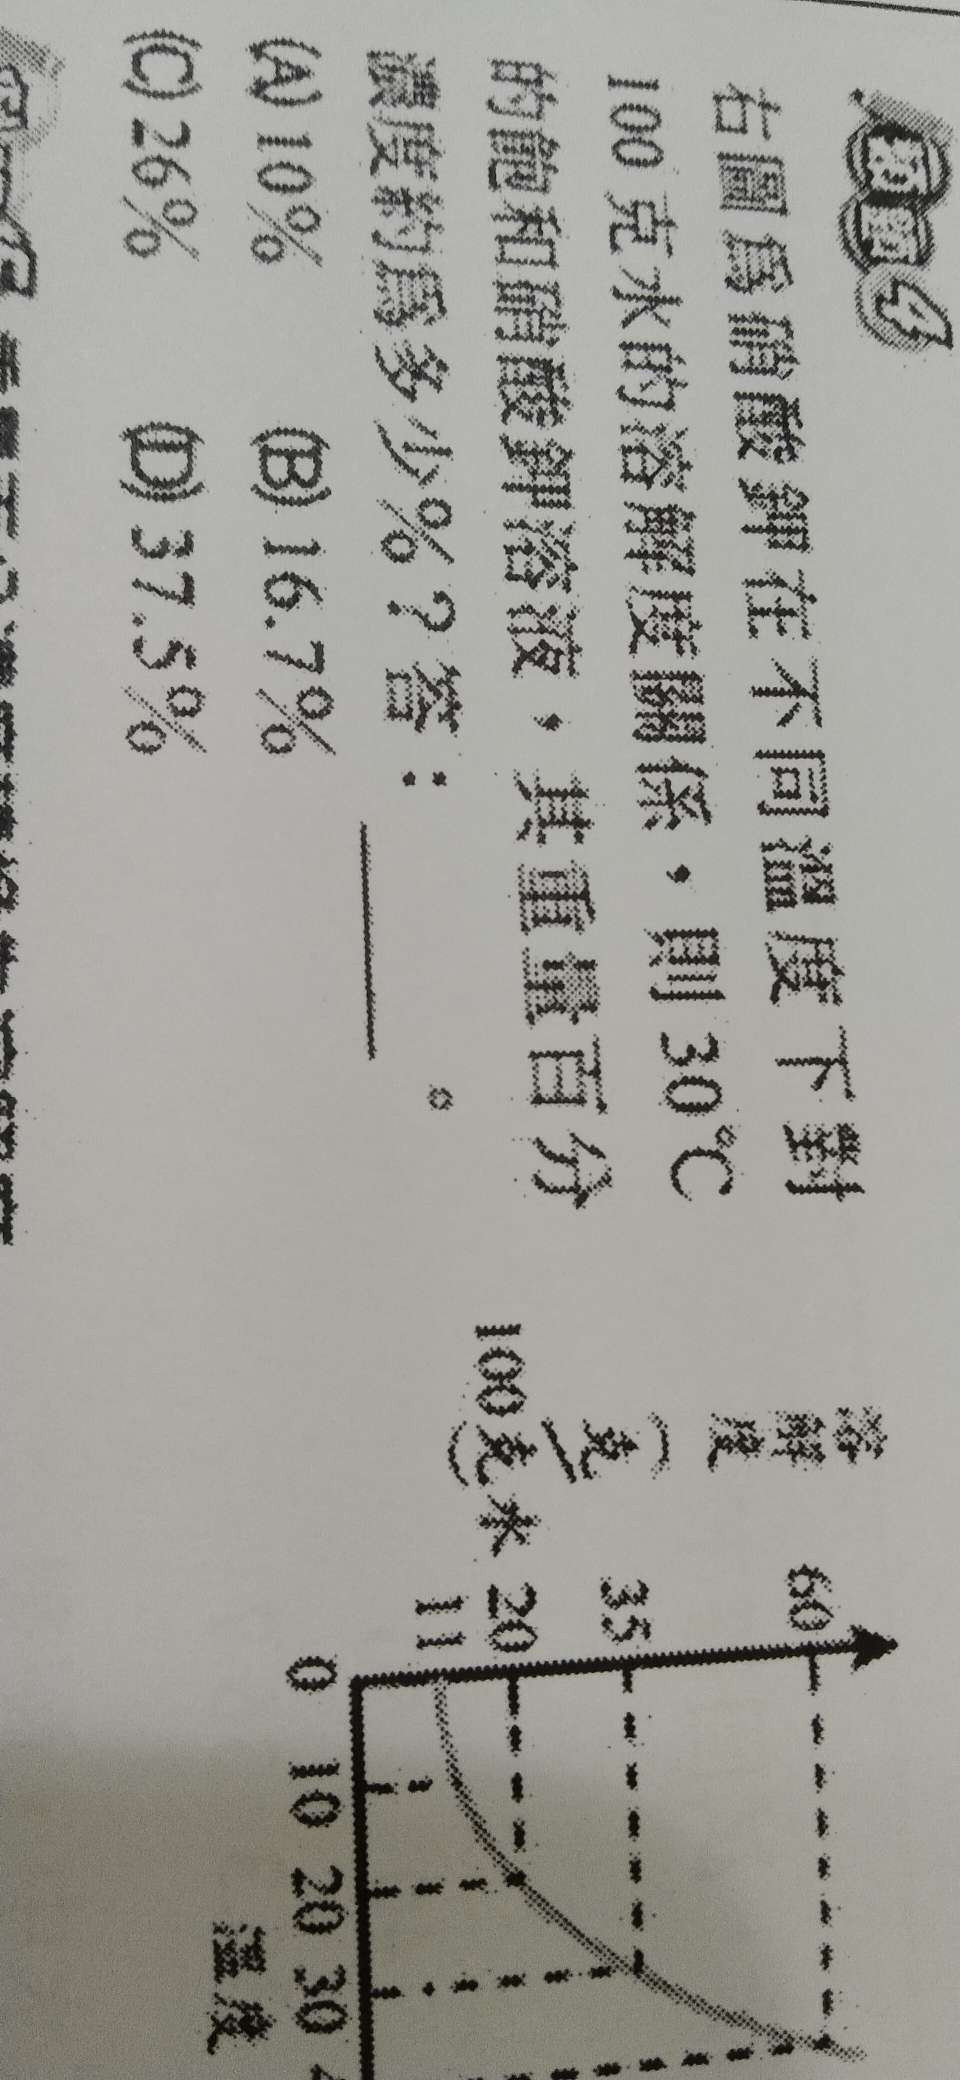 範題4
右圖為硝酸鉀在不同溫度下對
100 克水的溶解度關係,則 30℃
的飽和硝酸鉀溶液,其重量百分
濃度約為多少%?答:______。
(A) 10% (B) 16.7%
(C) 26% (D) 37.5%
溶解度(克/100克水)
60
35
20
11
0 10 20 30
溫度